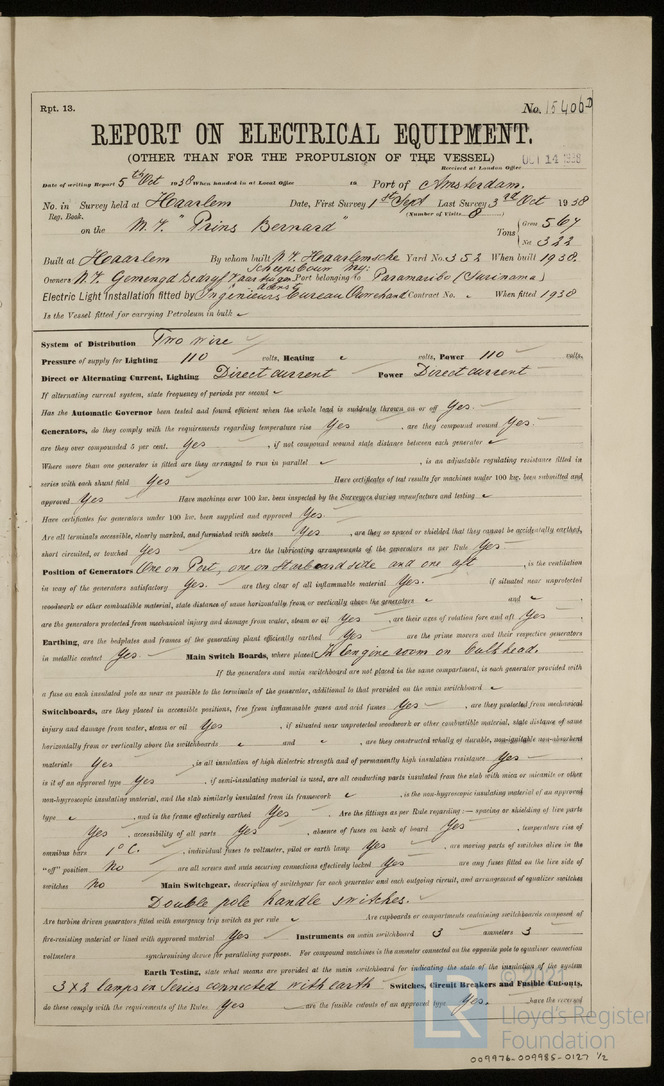 Rpt. 13.
No. 15406D
REPORT ON ELECTRICAL EQUIPMENT.
(OTHER THAN FOR THE PROPULSION OF THE VESSEL)
Received at London Office OCT 14 1938
Date of writing Report 5th Oct 1938 When handed in at Local Office 19 Port of Amsterdam.
No. in Survey held at Haarlem Date, First Survey 1st Sept Last Survey 3rd Oct 1938
Reg. Book. (Number of Visits 8)
on the M.V. "Prins Bernard" Tons { Gross 567
Net 322
Built at Haarlem By whom built N.V. Haarlemsche Yard No. 352 When built 1938.
Scheepsbouw My:
Owners N.V. Gemengd Bedryf Port belonging to Paramaribo (Suriname)
Electric Light Installation fitted by Ingenieurs Bureau Contract No. When fitted 1938
Is the Vessel fitted for carrying Petroleum in bulk
System of Distribution Two wire
Pressure of supply for Lighting 110 volts, Heating volts, Power 110 volts,
Direct or Alternating Current, Lighting Direct current Power Direct current
If alternating current system, state frequency of periods per second
Has the Automatic Governor been tested and found efficient when the whole load is suddenly thrown on or off Yes.
Generators, do they comply with the requirements regarding temperature rise Yes , are they compound wound Yes.
are they over compounded 5 per cent. Yes , if not compound wound state distance between each generator
Where more than one generator is fitted are they arranged to run in parallel , is an adjustable regulating resistance fitted in
series with each shunt field Yes Have certificates of test results for machines under 100 kw. been submitted and
approved Yes Have machines over 100 kw. been inspected by the Surveyors during manufacture and testing
Have certificates for generators under 100 kw. been supplied and approved Yes.
Are all terminals accessible, clearly marked, and furnished with sockets Yes , are they so spaced or shielded that they cannot be accidentally earthed,
short circuited, or touched Yes Are the lubricating arrangements of the generators as per Rule Yes.
Position of Generators One on Port, one on Starboard side and one aft , is the ventilation
in way of the generators satisfactory Yes. are they clear of all inflammable material Yes. if situated near unprotected
woodwork or other combustible material, state distance of same horizontally from or vertically above the generators and ,
are the generators protected from mechanical injury and damage from water, steam or oil Yes , are their axes of rotation fore and aft Yes
Earthing, are the bedplates and frames of the generating plant efficiently earthed Yes are the prime movers and their respective generators
in metallic contact Yes. Main Switch Boards, where placed In Engine room on bulkhead.
If the generators and main switchboard are not placed in the same compartment, is each generator provided with
a fuse on each insulated pole as near as possible to the terminals of the generator, additional to that provided on the main switchboard
Switchboards, are they placed in accessible positions, free from inflammable gases and acid fumes Yes , are they protected from mechanical
injury and damage from water, steam or oil Yes , if situated near unprotected woodwork or other combustible material, state distance of same
horizontally from or vertically above the switchboards and , are they constructed wholly of durable, non-ignitable non-absorbent
materials Yes , is all insulation of high dielectric strength and of permanently high insulation resistance Yes
is it of an approved type Yes , if semi-insulating material is used, are all conducting parts insulated from the slab with mica or micanite or other
non-hygroscopic insulating material, and the slab similarly insulated from its framework , is the non-hygroscopic insulating material of an approved
type , and is the frame effectively earthed Yes Are the fittings as per Rule regarding:— spacing or shielding of live parts
Yes , accessibility of all parts Yes , absence of fuses on back of board Yes , temperature rise of
omnibus bars 1° C. , individual fuses to voltmeter, pilot or earth lamp Yes , are moving parts of switches alive in the
"off" position No are all screws and nuts securing connections effectively locked Yes are any fuses fitted on the live side of
switches No Main Switchgear, description of switchgear for each generator and each outgoing circuit, and arrangement of equalizer switches
Double pole handle switches.
Are turbine driven generators fitted with emergency trip switch as per rule Are cupboards or compartments containing switchboards composed of
fire-resisting material or lined with approved material Yes Instruments on main switchboard 3 ammeters 3
voltmeters synchronising device for paralleling purposes. For compound machines is the ammeter connected on the opposite pole to equaliser connection
Earth Testing, state what means are provided at the main switchboard for indicating the state of the insulation of the system
3X2 lamps in series connected with earth Switches, Circuit Breakers and Fusible Cut-outs,
do these comply with the requirements of the Rules Yes are the fusible cutouts of an approved type Yes. have the reversed
© 2021
LR
Lloyd's Register
Foundation
009976-009985-0127 1/2